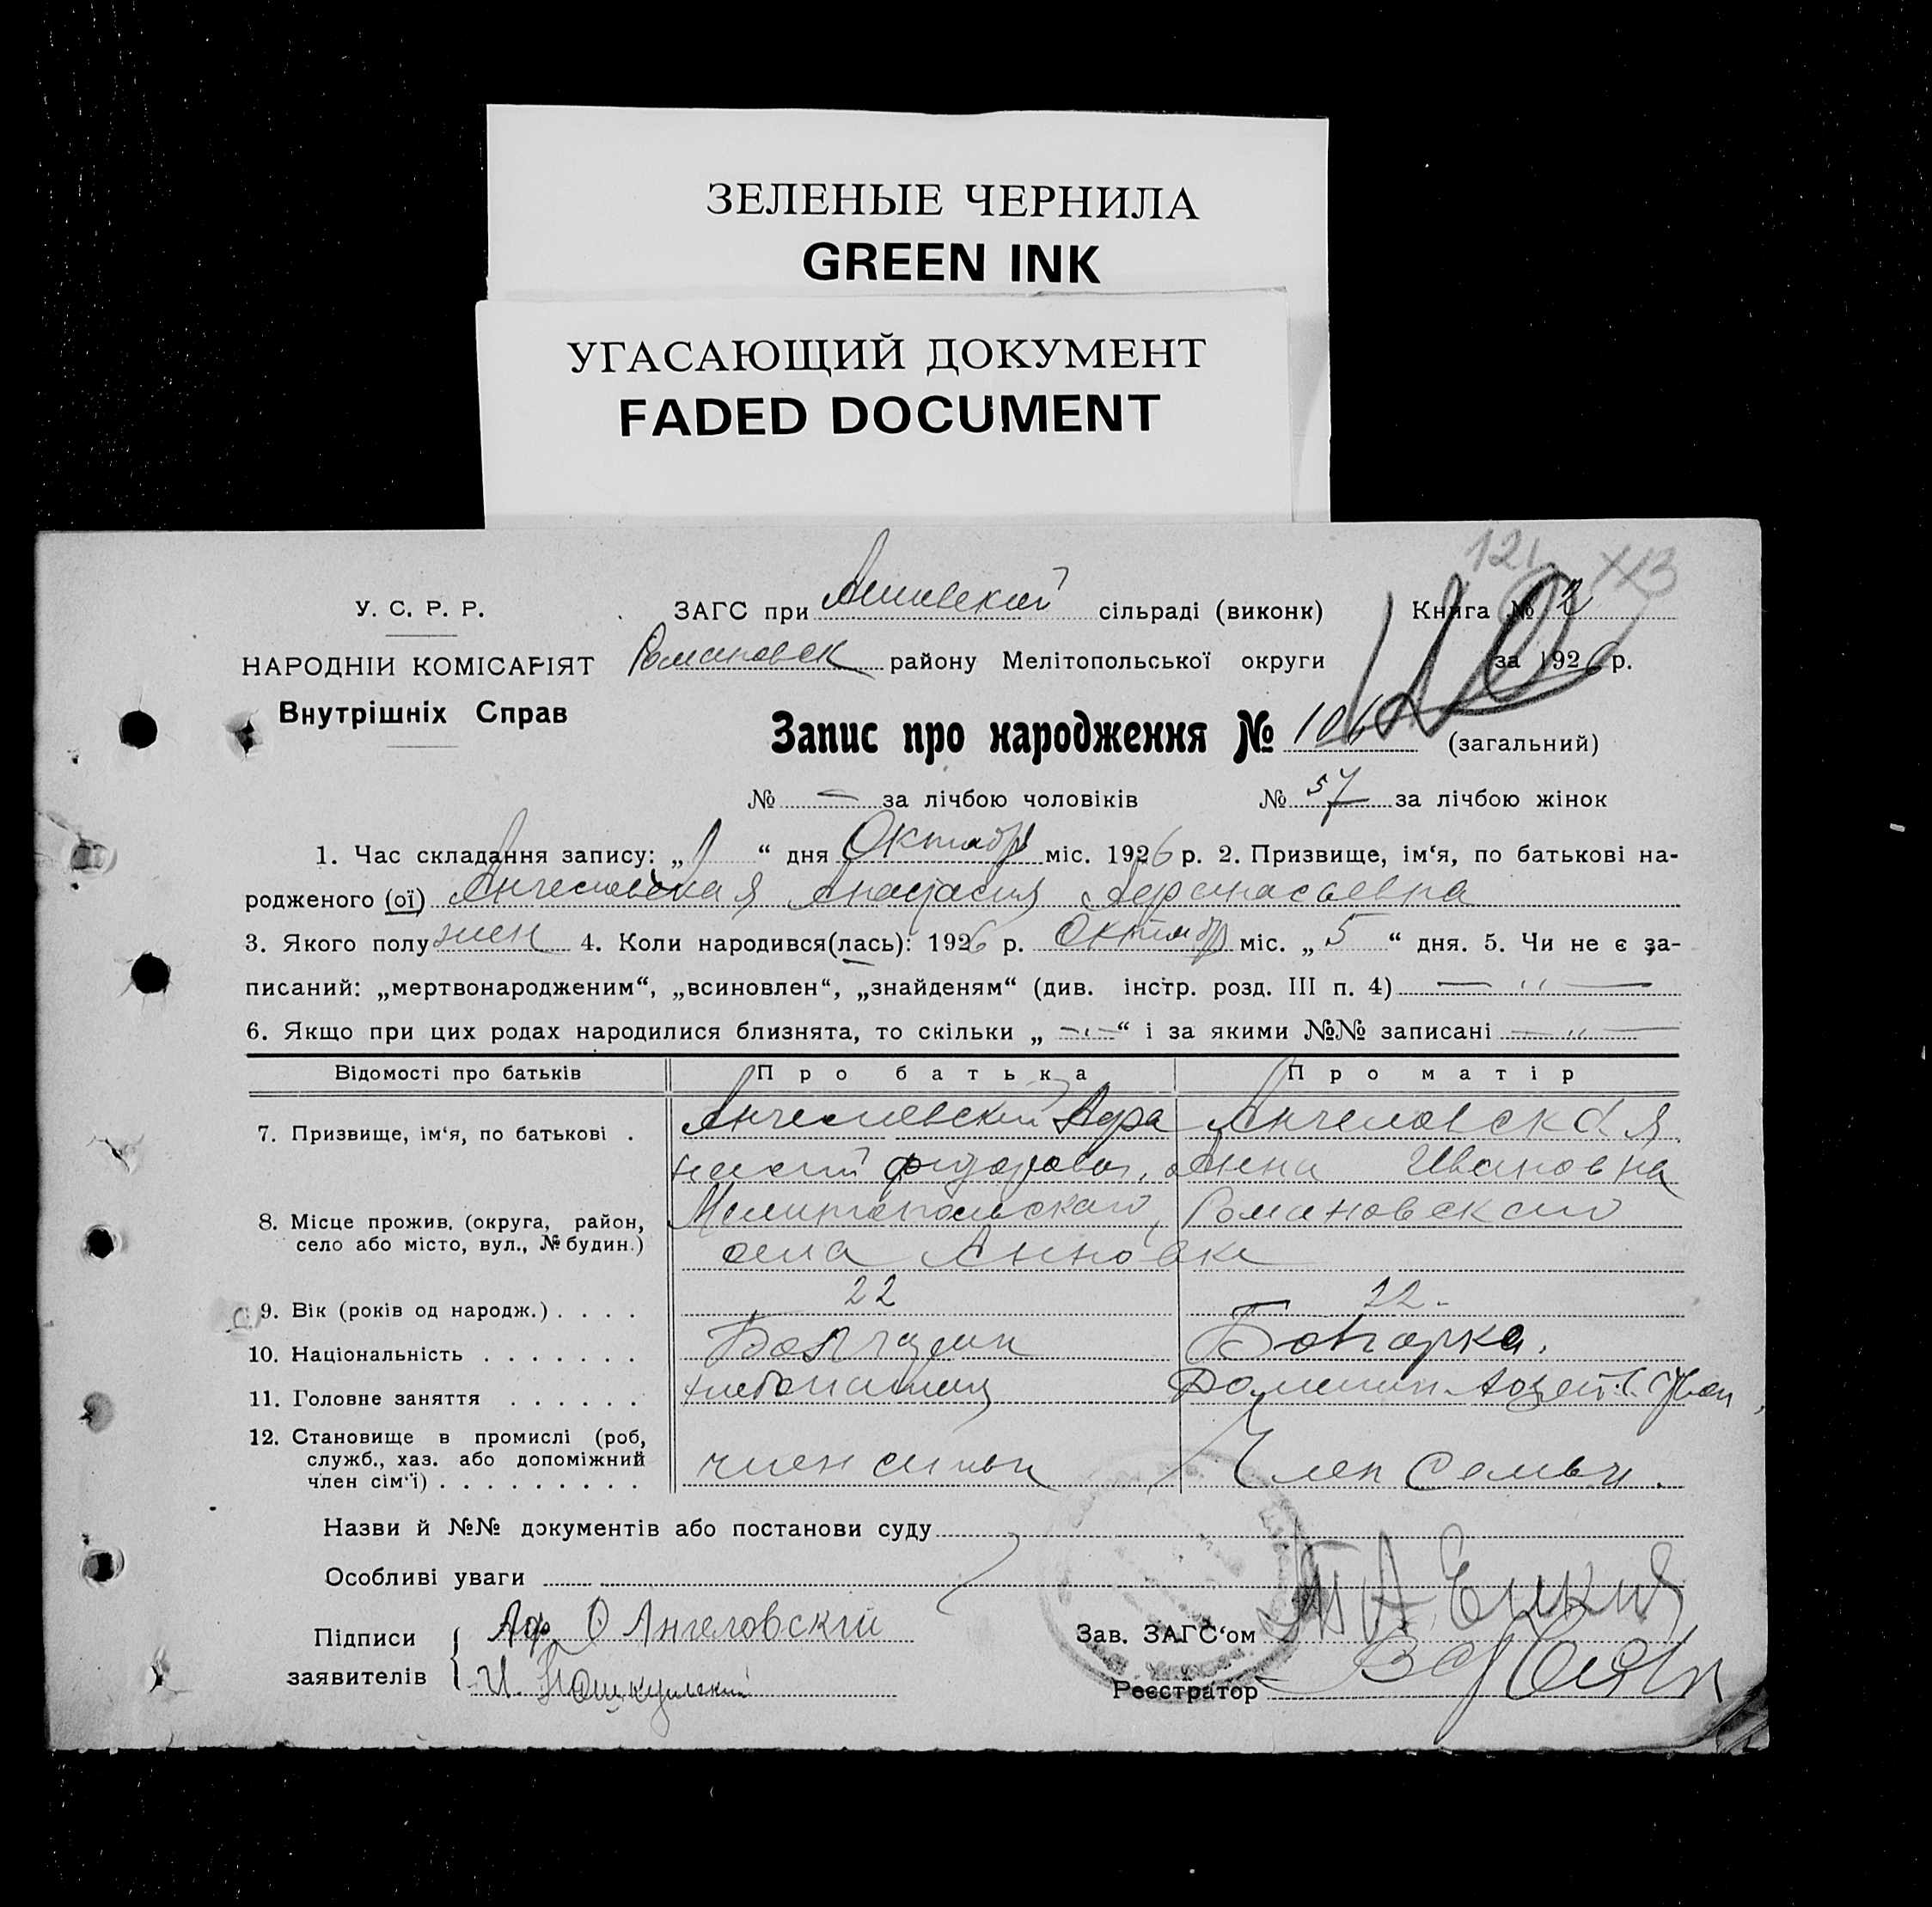 ЗЕЛЕНЫЕ ЧЕРНИЛА
GREEN INK
УГАСАЮЩИЙ ДОКУМЕНТ
FADED DOCUMENT
121
У. С. Р. Р.
ЗАГС при сільраді (виконк) Книга № 2
НАРОДНІЙ КОМІСАРІЯТ
Романовск району Мелітопольської округи за 1926 р.
Внутрішніх Справ
Запис про народження № 106 (загальний)
№ — за лічбою чоловіків № 57 за лічбою жінок
1. Час складання запису: „ “ дня Октабр міс. 1926 р. 2. Призвище, ім‘я, по батькові на-
родженого (ої) Анастасия Афанасьевна
3. Якого полу жен 4. Коли народився(лась): 1926 р. Октабр міс. „ 5 “ дня. 5. Чи не є за-
писаний: „мертвонародженим“, „всиновлен“, „знайденям“ (див. інстр. розд. III п. 4) — ״ —
6. Якщо при цих родах народилися близнята, то скільки „ -״- “ і за якими №№ записані — ״ —
Відомості про батьків Про батька Про матір
7. Призвище, ім‘я, по батькові . Ангеловский Афа Ангеловская
насий Анна Ивановна
8. Місце прожив. (округа, район, Мелитопольского, Романовского
село або місто, вул., № будин.) села Анновки
9. Вік (років од народж.) . . . . 22 22 -
10. Національність . . . . . . . Болгарин Болгарка.
11. Головне заняття . . . . . . хлебопашец
12. Становище в промислі (роб,
служб., хаз. або допоміжний член семьи Член семьи.
член сім‘ї) . . . . . . . . .
Назви й №№ документів або постанови суду
Особливі уваги
Підписи Аф. Ангеловскій Зав. ЗАГС‘ом
заявителів И. Реєстратор